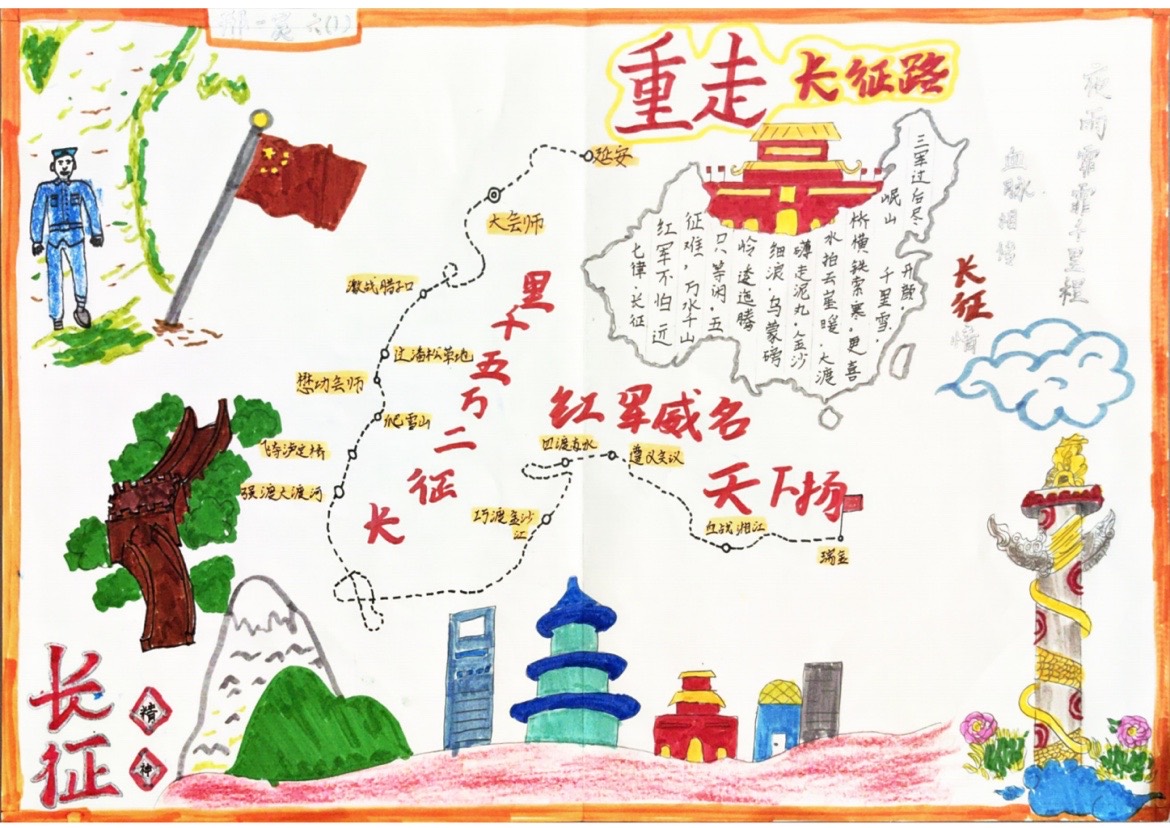 六(1)
重走长征路
延安
大会师
激战腊子口
过潘松草地
懋功会师
爬雪山
飞夺泸定桥
强渡大渡河
巧渡金沙江
四渡赤水
遵义会议
血战湘江
瑞金
长征二万五千里
红军威名
天下扬
七律·长征
红军不怕远
征难,万水千山
只等闲.五
岭逶迤腾
细浪.乌蒙磅
礴走泥丸.金沙
水拍云崖暖.大渡
桥横铁索寒.更喜
岷山
千里雪.
三军过后尽.
开颜.
长征情
长征
精神